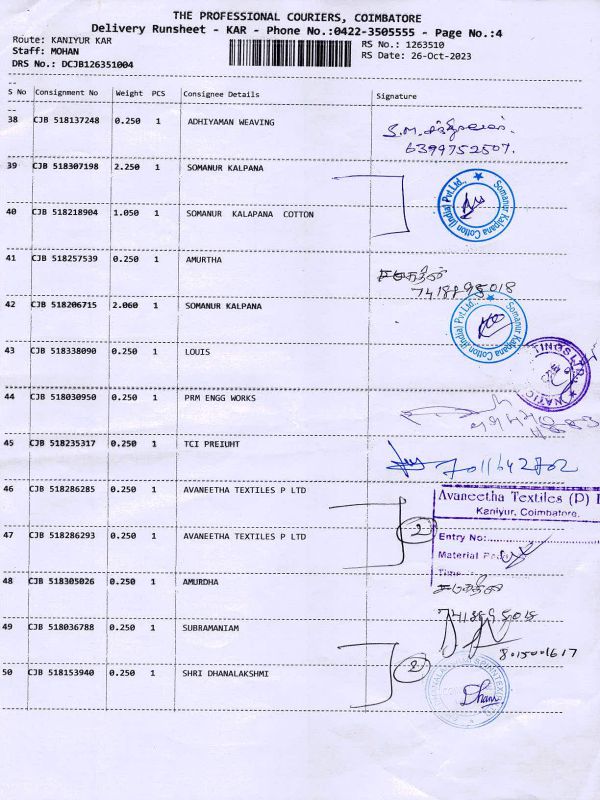 THE PROFESSIONAL COURIERS, COIMBATORE
Delivery Runsheet - KAR - Phone No.:0422-3505555 - Page No.:4
Route: KANIYUR KAR
RS No.: 1263510
Staff: MOHAN
RS Date: 26-Oct-2023
DRS No.: DCJB126351004
S No Consignment No Weight PCS Consignee Details Signature
38 CJB 518137248 0.250 1 ADHIYAMAN WEAVING
6399752507.
39 CJB 518307198 2.250 1 SOMANUR KALPANA
Somanur Kalpana Cotton (India) Pvt.Ltd.,
40 CJB 518218904 1.050 1 SOMANUR KALAPANA COTTON
41 CJB 518257539 0.250 1 AMURTHA
7418895018
42 CJB 518206715 2.060 1 SOMANUR KALPANA
Somanur Kalpana Cotton (India) Pvt.Ltd.,
43 CJB 518338090 0.250 1 LOUIS
44 CJB 518030950 0.250 1 PRM ENGG WORKS
45 CJB 518235317 0.250 1 TCI PREIUHT
7011642702
46 CJB 518286285 0.250 1 AVANEETHA TEXTILES P LTD
Avaneetha Textiles (P)
Kaniyur, Coimbatore.
47 CJB 518286293 0.250 1 AVANEETHA TEXTILES P LTD
2
Entry No:
Material
Time
48 CJB 518305026 0.250 1 AMURDHA
7418895018
49 CJB 518036788 0.250 1 SUBRAMANIAM
8015001617
50 CJB 518153940 0.250 1 SHRI DHANALAKSHMI
2